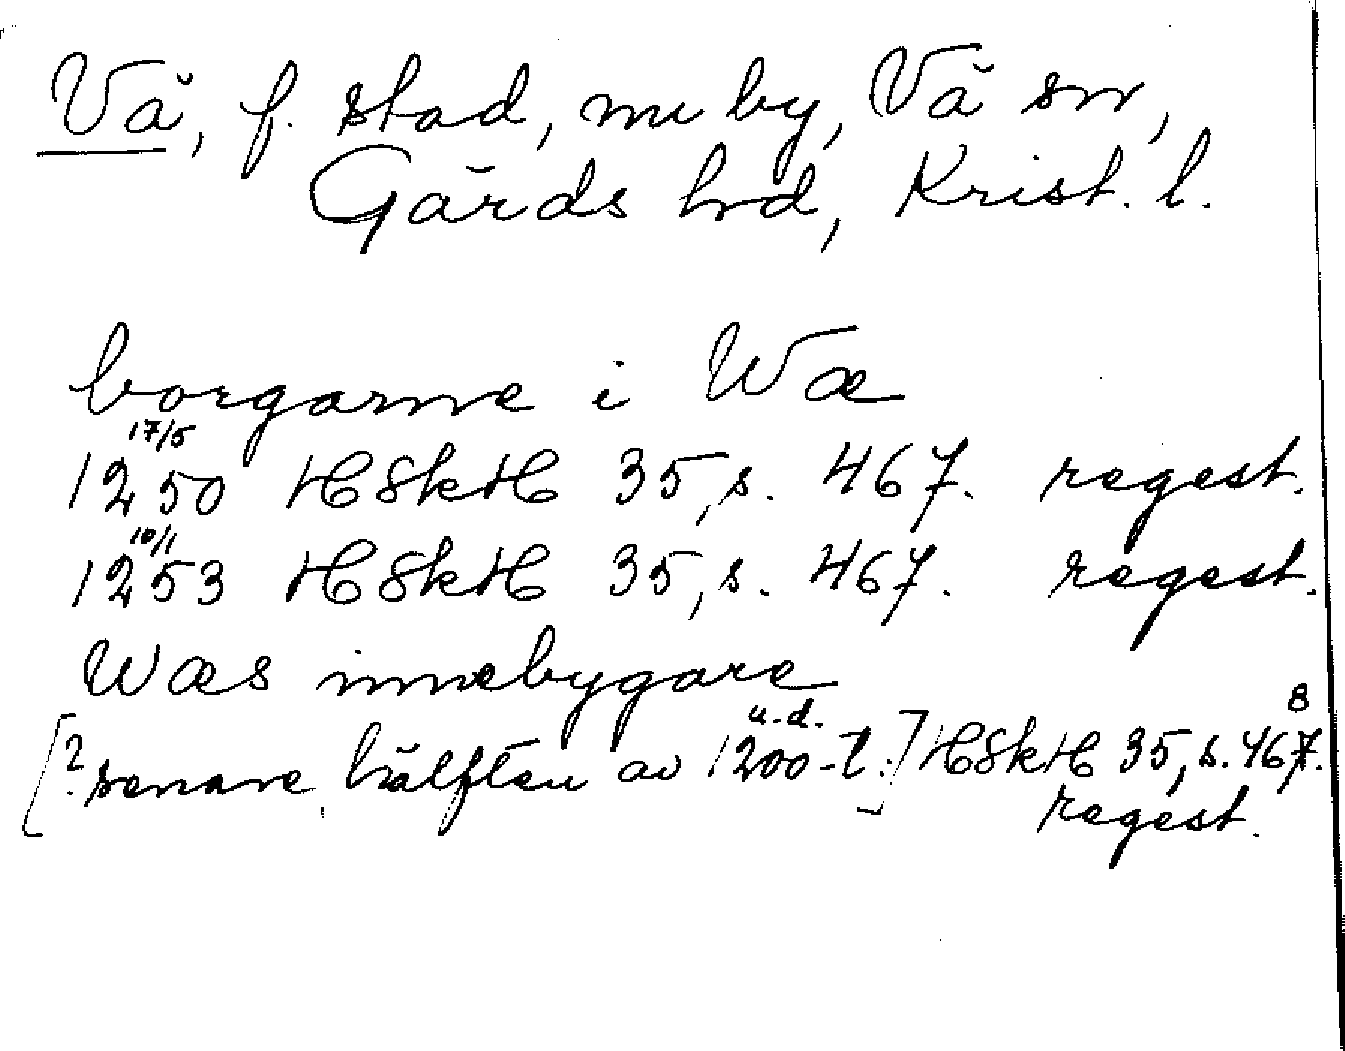 Vä, f. stad, nu by, Vä sn,
Gärds hd, Krist. l.
borgarne i Wæ
17/5
1250 HSkH 35, s. 467. regest.
10/1
1253 HSkH 35, s. 467. regest.
Wæs innebygare
u.d. 8
[? senare hälften av 1200-t.] HSkH 35, s. 467.
regest.